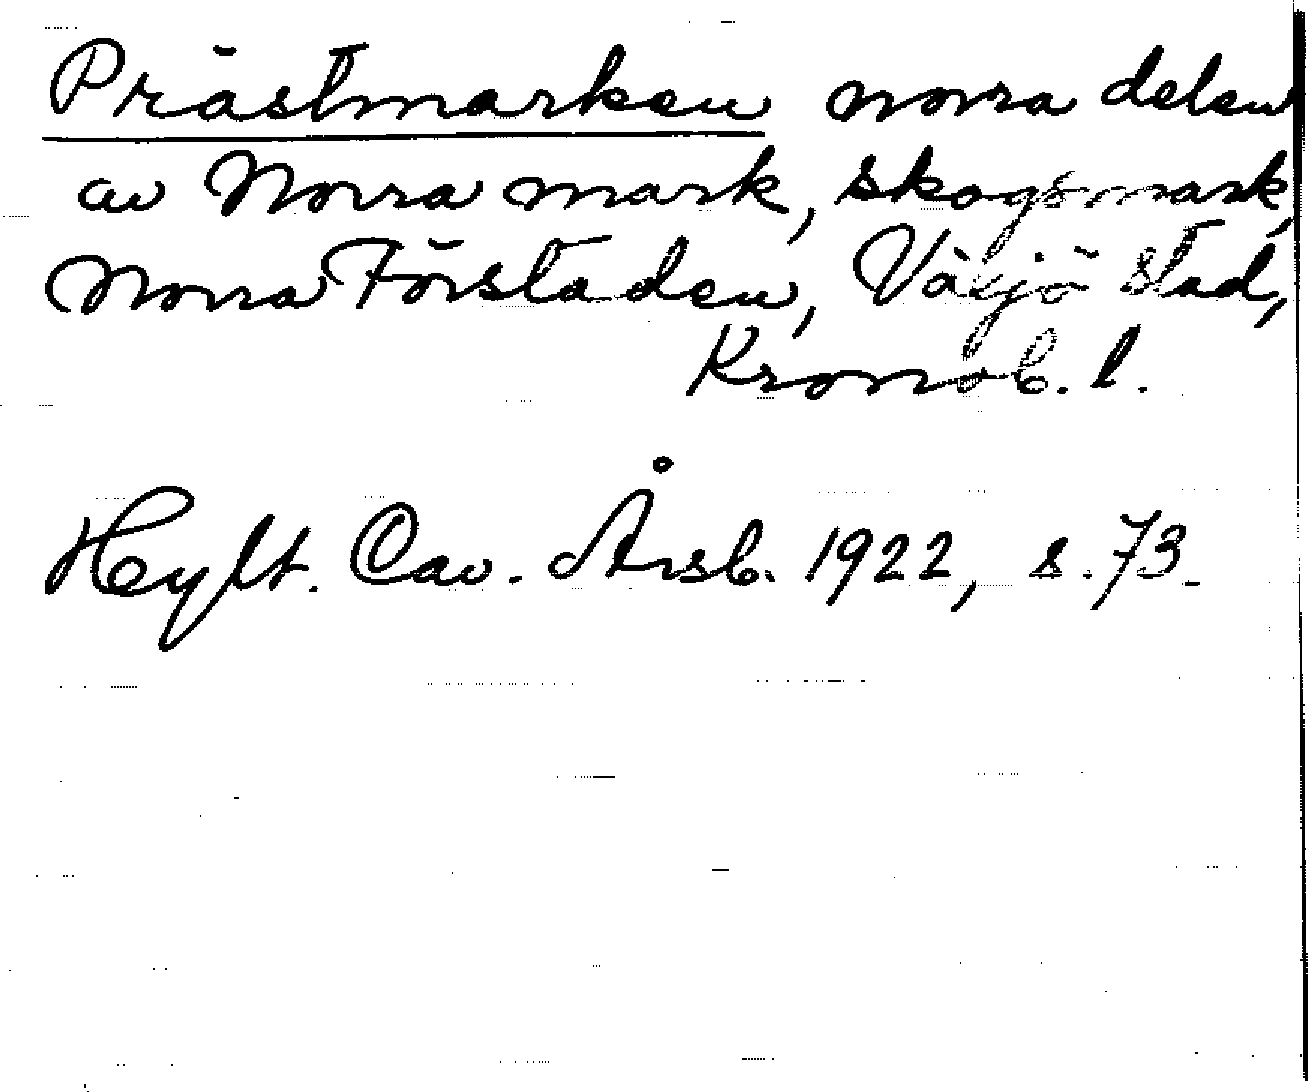 Prästmarken norra delen
av Norra mark, skogsmark,
Norra Förstaden, Växjö stad,
Kronob. l.
Hylt. Cav. Årsb. 1922, s. 73.